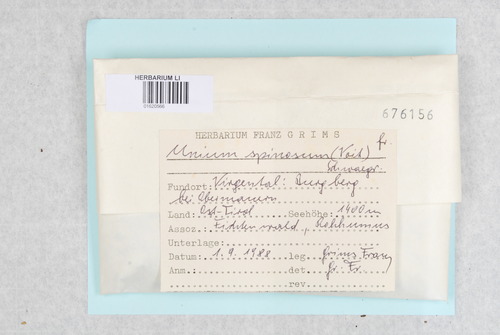 HERBARIUM LI
676156
HERBARIUM FRANZ GRIMS
Mnium spinosum (Voit) fr.
Schwaegr.
Fundort: Virgental: Burgberg
bei Obermauern
Land: Ost-Tirol Seehöhe: 1400 m
Assoz.: Fichtenwald, Rohhumus
Unterlage:
Datum: 1.9.1988 leg. Grims Franz
Anm.: det. Gr. Fr.
rev.